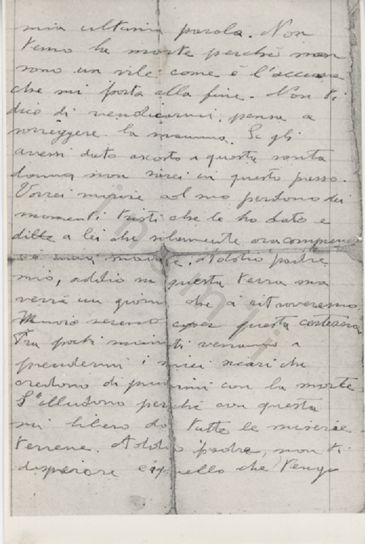 mia ultima parola. Non
temo la morte perché non
sono un vile come è l'accusa
che mi porta alla fine. Non ti
dico di vendicarmi, pensa a
sorreggere la mamma. Se gli
avessi dato ascolto a questa santa
donna non sarei in questo passo.
Vorrei morire col suo perdono dei
momenti tristi che le ho dato e
dille a lei che solamente ora comprendo
mamma. Addio padre
mio, addio su questa terra ma
verrà un giorno che ci ritroveremo
Muoio sereno questa certezza
Tra pochi minuti verranno a
prendermi i miei sicari che
credono di punirmi con la morte
S'illudono perché con questa
mi libero da tutte le miserie
terrene. Addio padre, non ti
disperare è quello che tengo